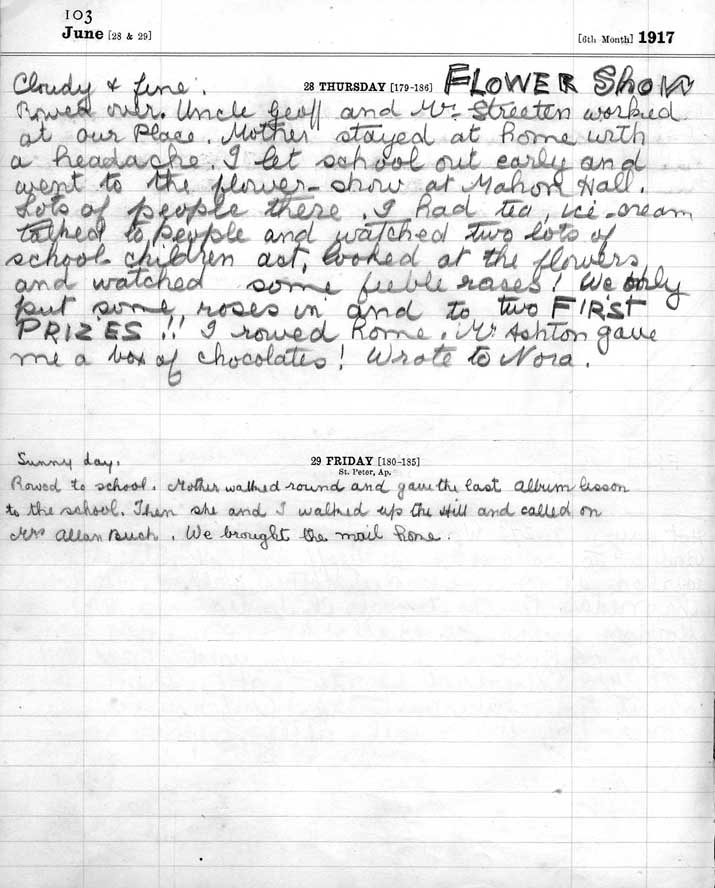 103
June [28 & 29] [6th Month] 1917
Cloudy & fine. 28 THURSDAY [179-186] FLOWER SHOW
Rowed over. Uncle Geoff and Mr. Streeten worked
at our Place. Mother stayed at home with
a headache. I let school out early and
went to the flower-show at Mahon Hall.
Lots of people there. I had tea, ice-cream
talked to people and watched two lots of
school children act, looked at the flowers
and watched some feeble races! We only
put some roses in and to two FIRST
PRIZES!! I rowed home. Mr Ashton gave
me a box of chocolates! Wrote to Nora.
Sunny day. 29 FRIDAY [180-185]
St. Peter, Ap.
Rowed to school. Mother walked round and gave the last album lesson
to the school. Then she and I walked up the Hill and called on
Mrs Allan . We brought the mail home.